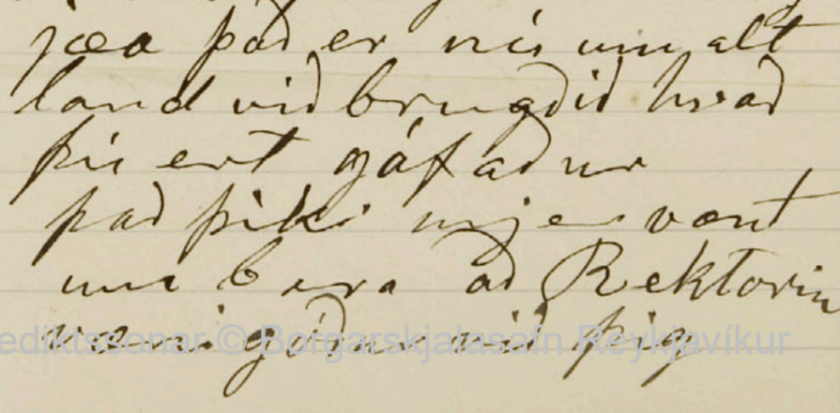 jæa það er nú um alt
land viðbrugðið hvað
þú ert gáfaður
það þiki mjer vænt
um bara að Rektorin
væri góður við þig
ediktssonar © Borgarskjalasafn Reykjavíkur